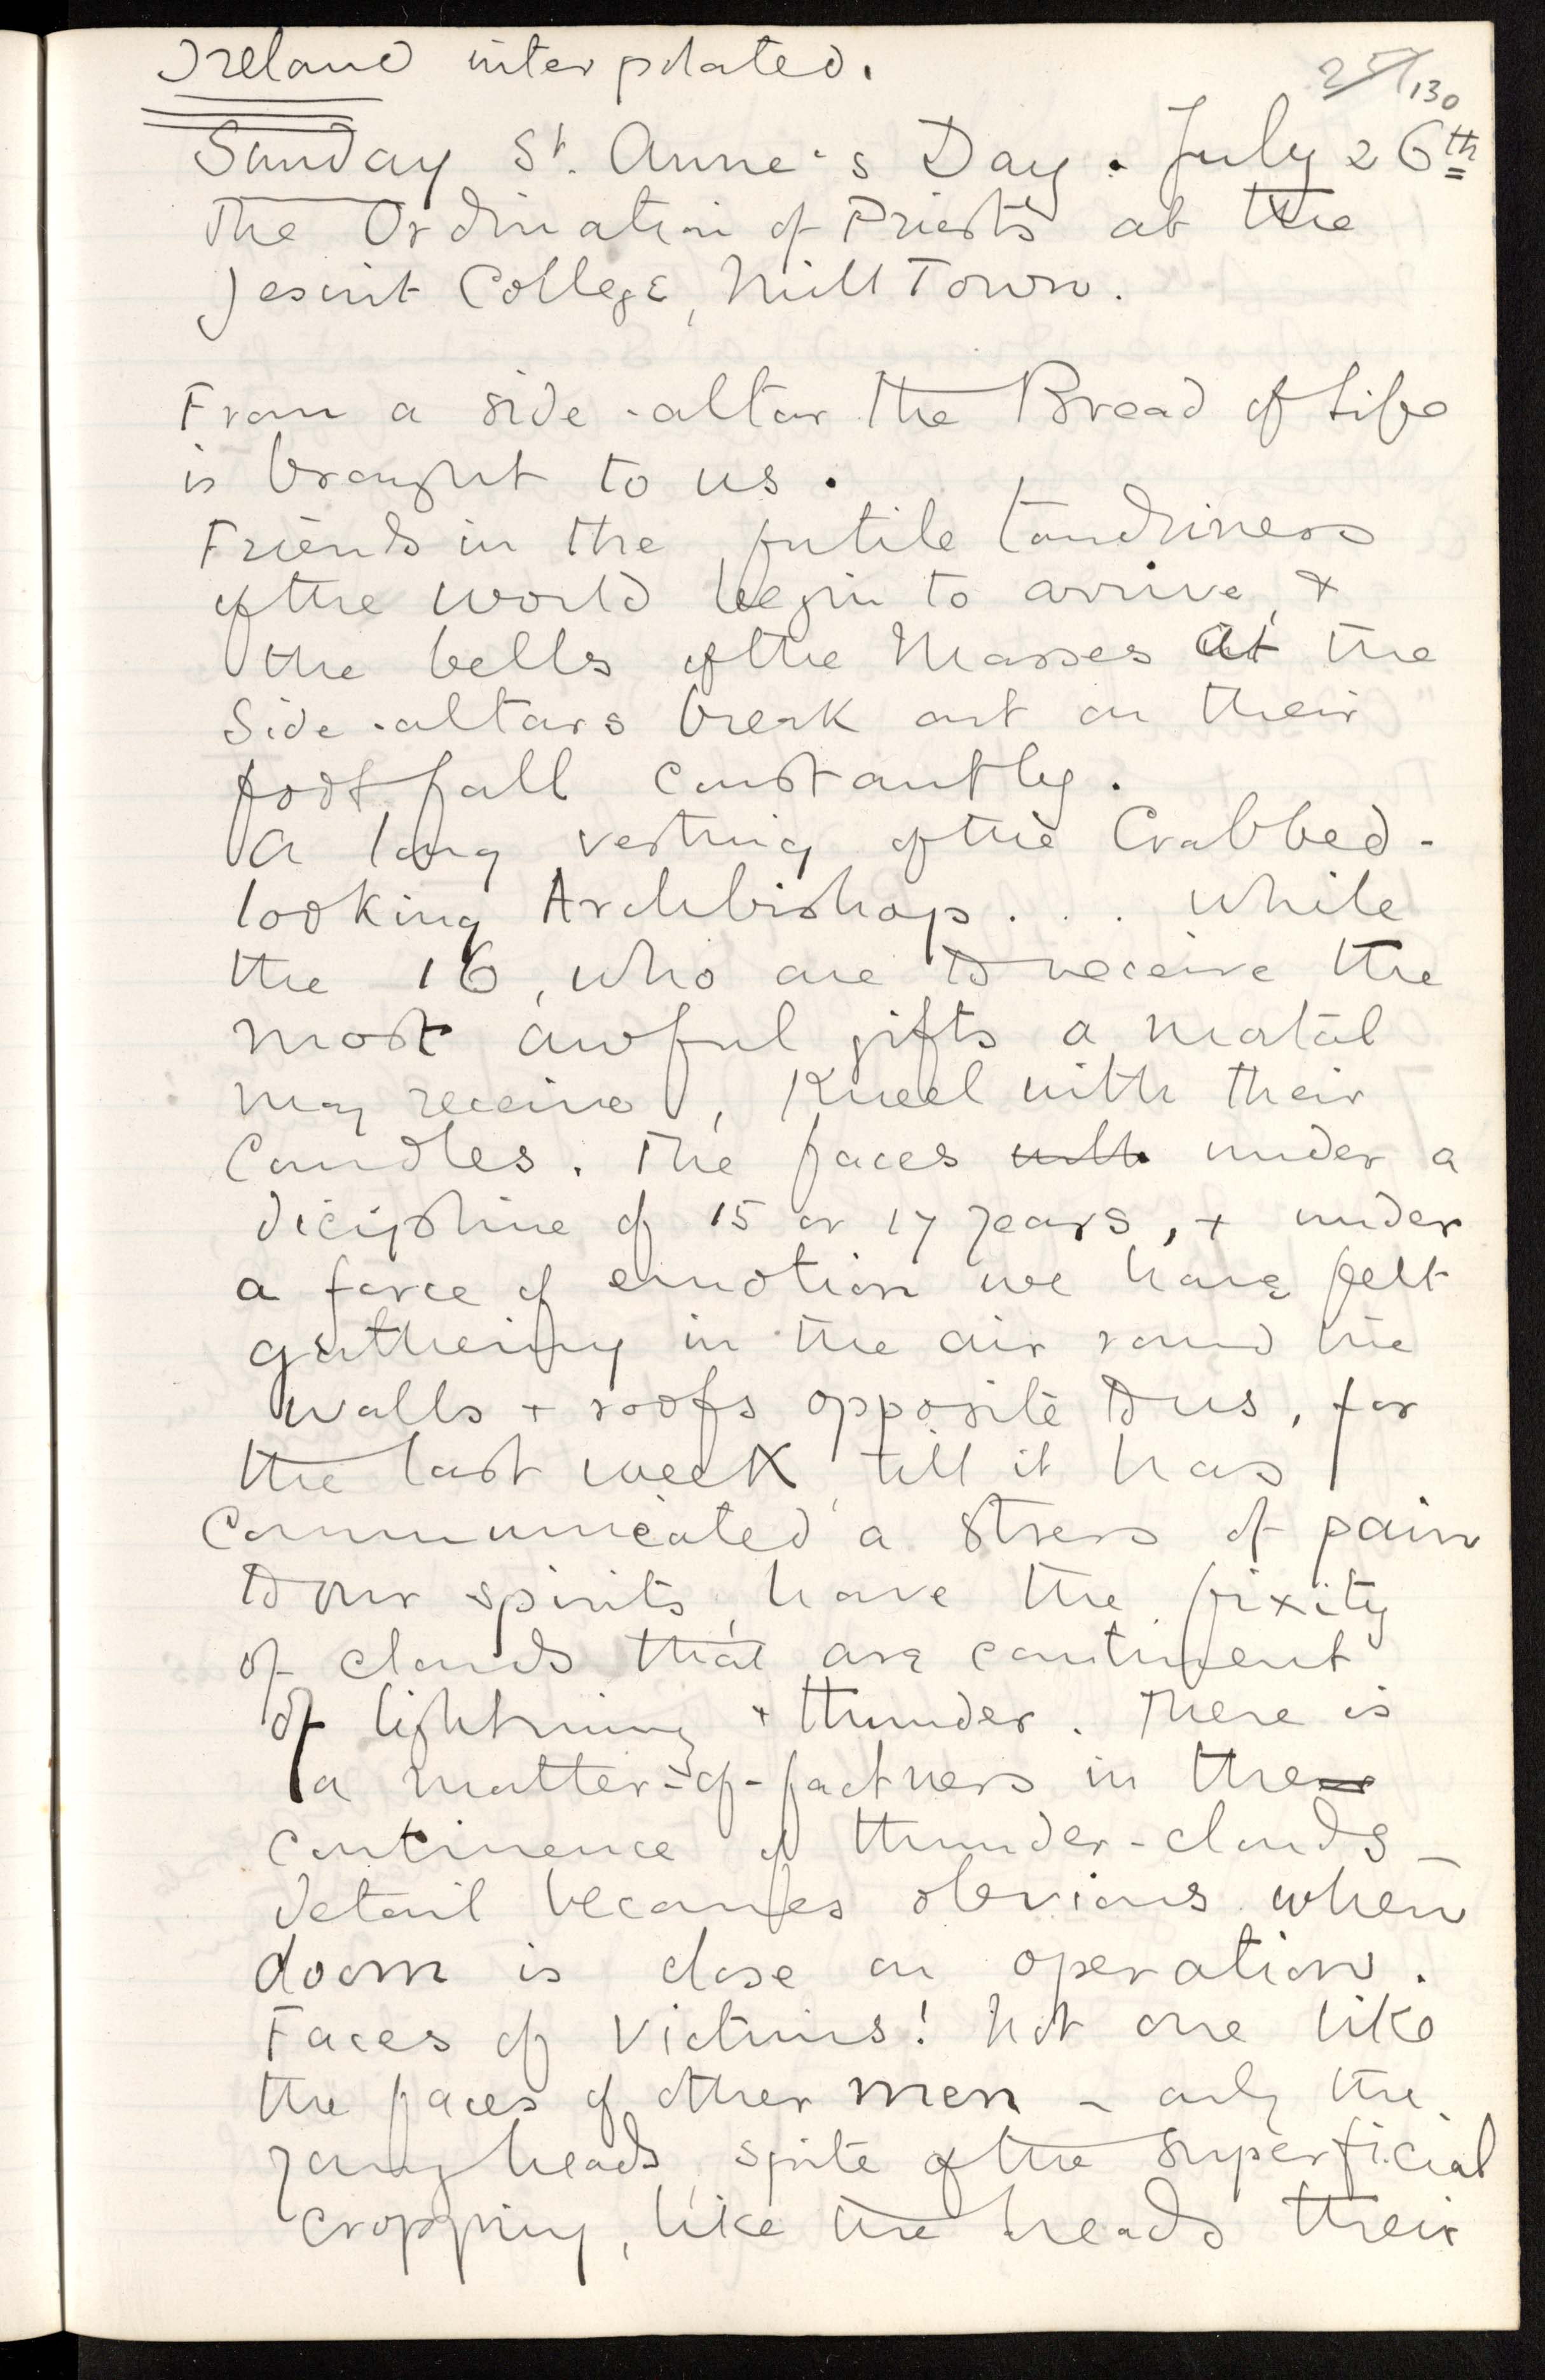 Ireland interpolated.
25/130
Sunday St. Anne's Day. July 26th
The Ordination of Priests at the
Jesuit College, Mill Town.
From a side-altar the Bread of Life
is brought to us.
Friends in the futile tawdriness
of the world begin to arrive, &
the bells of the Masses at the
Side-altars break out on their
footfall constantly.
A long vesting of the Crabbed-
looking Archbishop . . . while
the 16, who are to receive the
most awful gifts a mortal
may receive, Kneel with their
Candles. The faces with under a
dicipline of 15 or 17 years, + under
a force of emotion we have felt
gathering in the air round the
walls + roofs opposite to us, for
the last week, till it has
communicated a stress of pain
to our spirits, have the fixity
of clouds that are continent
of lightning + thunder. There is
a matter-of-factness in the
continence of thunder-clouds –
detail becomes obvious when
doom is close on operation.
Faces of victims! Not one like
the faces of other men – only the
young heads, spite of the superficial
cropping, like the heads their